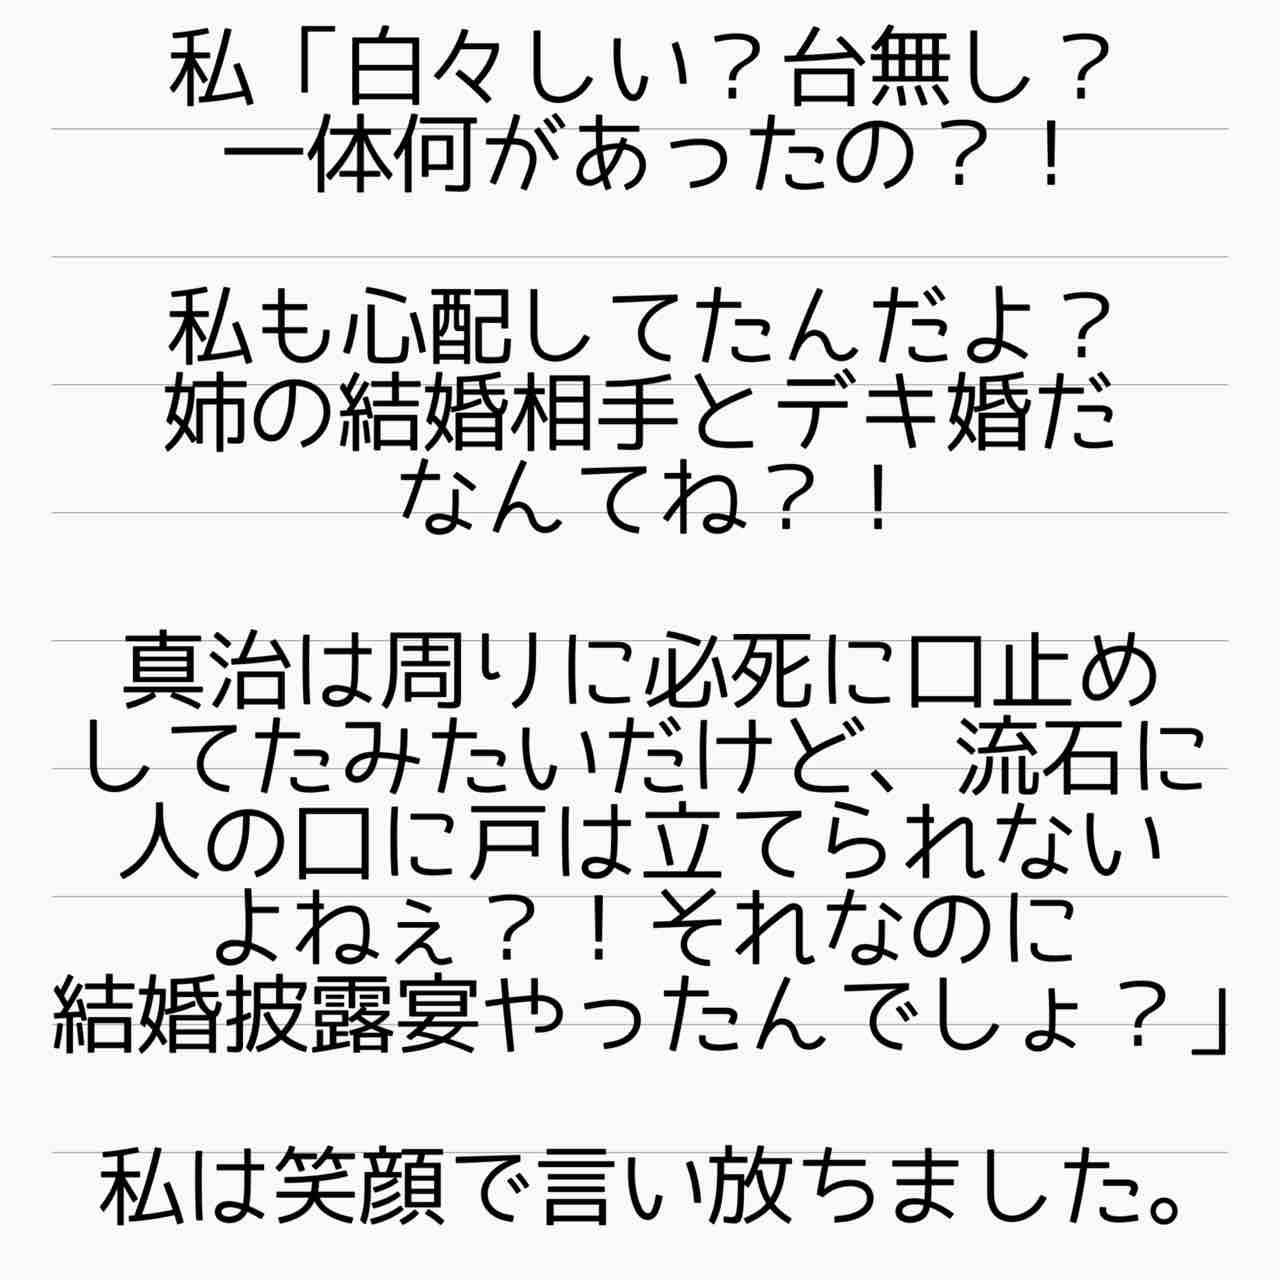 私「白々しい？台無し？
一体何があったの？！
私も心配してたんだよ？
姉の結婚相手とデキ婚だ
なんてね？！
真治は周りに必死に口止め
してたみたいだけど、流石に
人の口に戸は立てられない
よねぇ？！それなのに
結婚披露宴やったんでしょ？」
私は笑顔で言い放ちました。